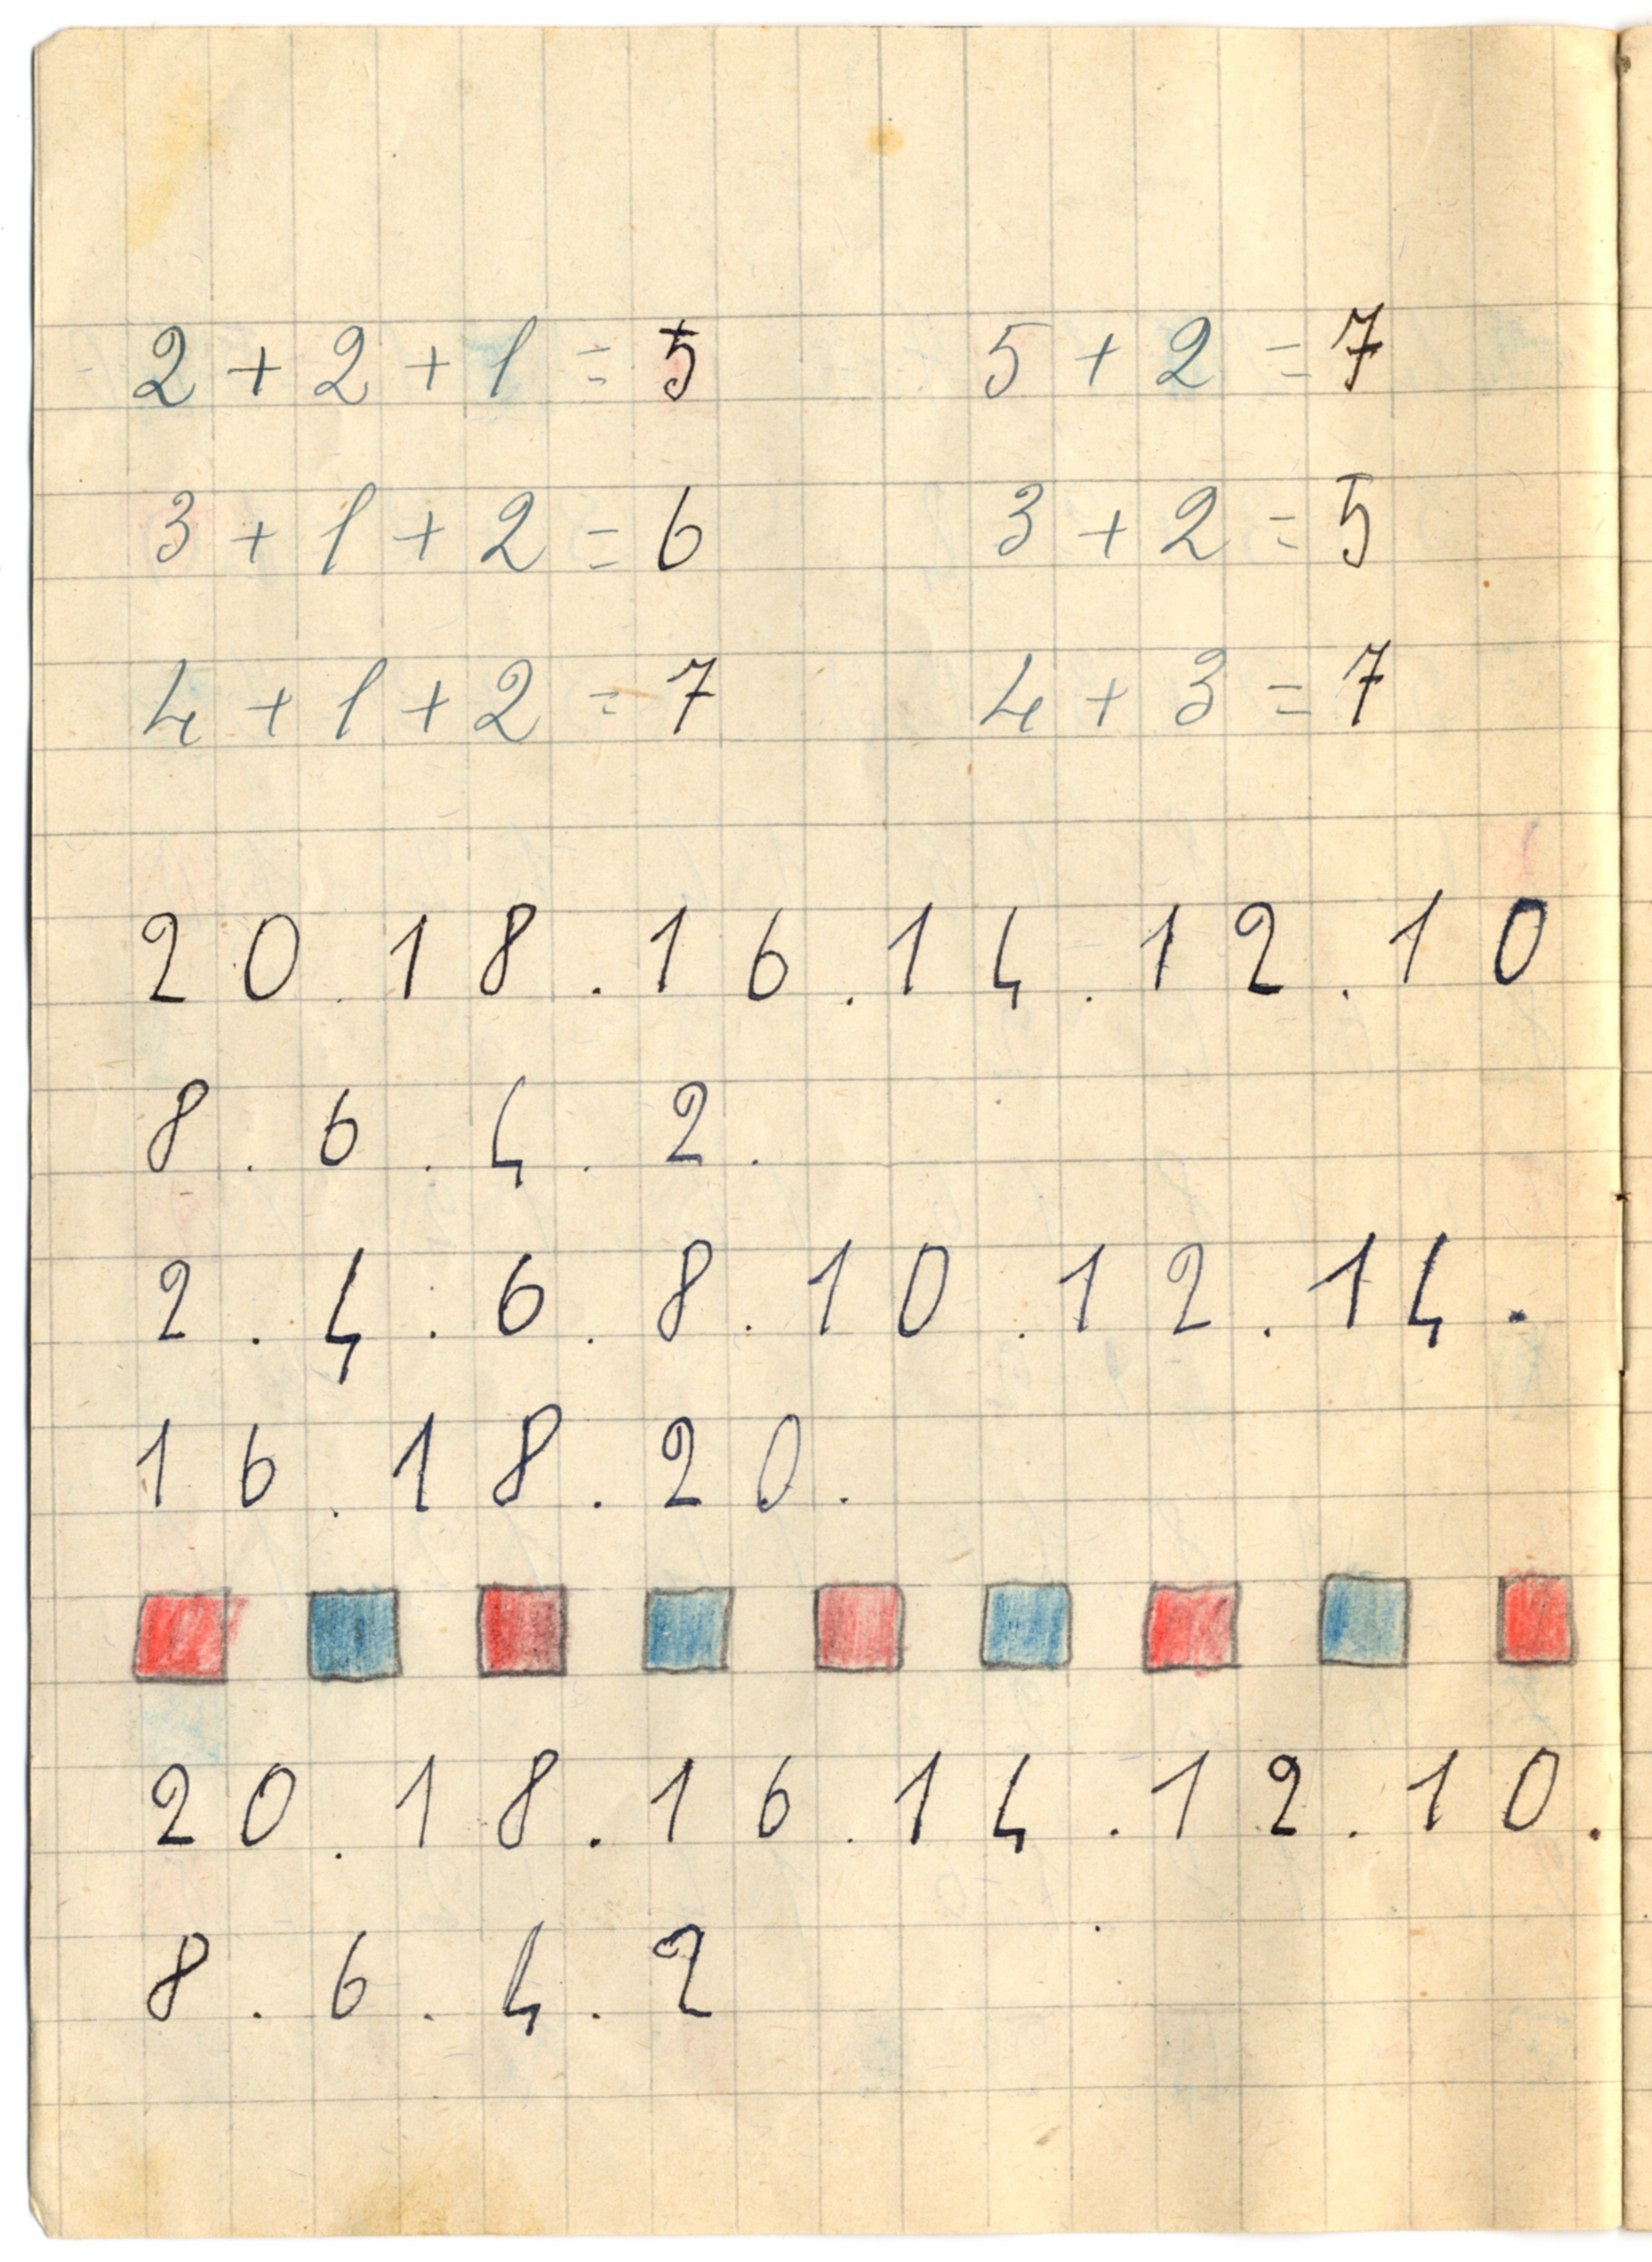 2 + 2 + 1 = 5 5 + 2 = 7
3 + 1 + 2 = 6 3 + 2 = 5
4 + 1 + 2 = 7 4 + 3 = 7
20.18.16.14.12.10
8.6.4.2.
2.4.6.8.10.12.14.
16.18.20.
20.18.16.14.12.10.
8.6.4.2